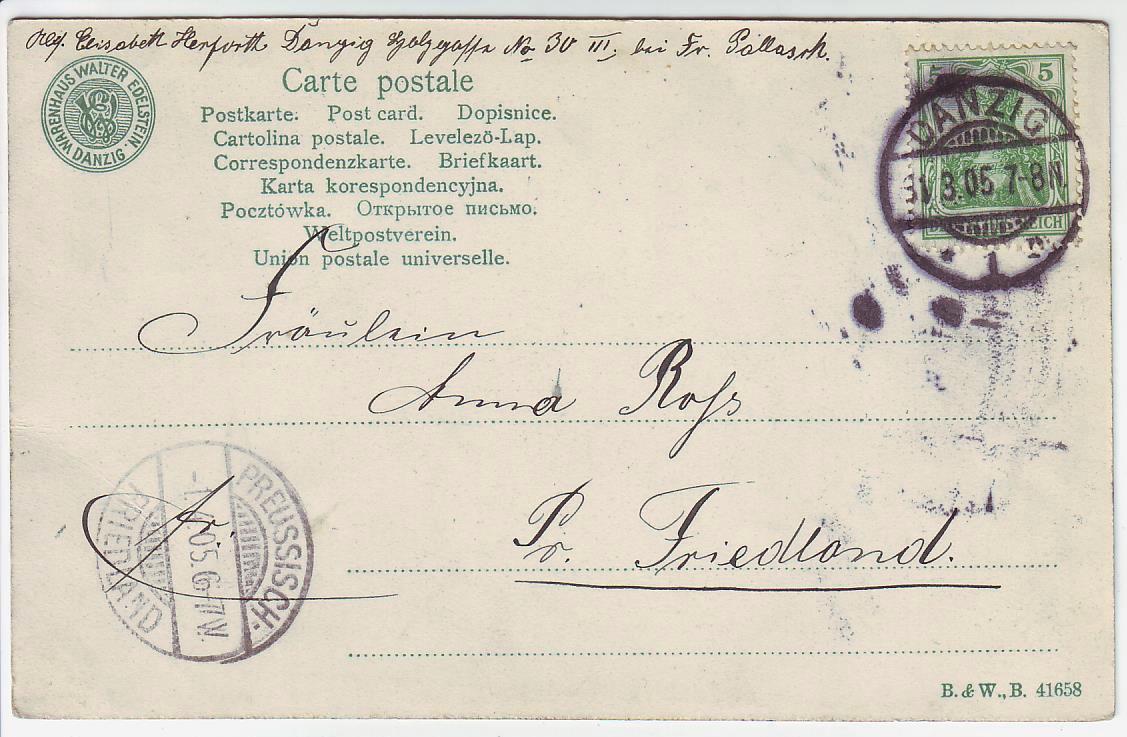 Elisabeth Herforth Danzig Holzgasse No 30 III, bei Fr. Pallasch.
WARENHAUS WALTER EDELSTEIN. DANZIG.
Carte postale
Postkarte. Post card. Dopisnice.
Cartolina postale. Levelezö-Lap.
Correspondenzkarte. Briefkaart.
Karta korespondencyjna.
Pocztówka. Открытое письмо.
Weltpostverein.
Union postale universelle.
5 5
REICH
DANZIG
31.3.05 7-8N.
* 1
Fräulein
Anna Roſs
Pr. Friedland.
fr.
PREUSSISCH-
-1.4.05.6-7V.
FRIEDLAND
B. & W., B. 41658